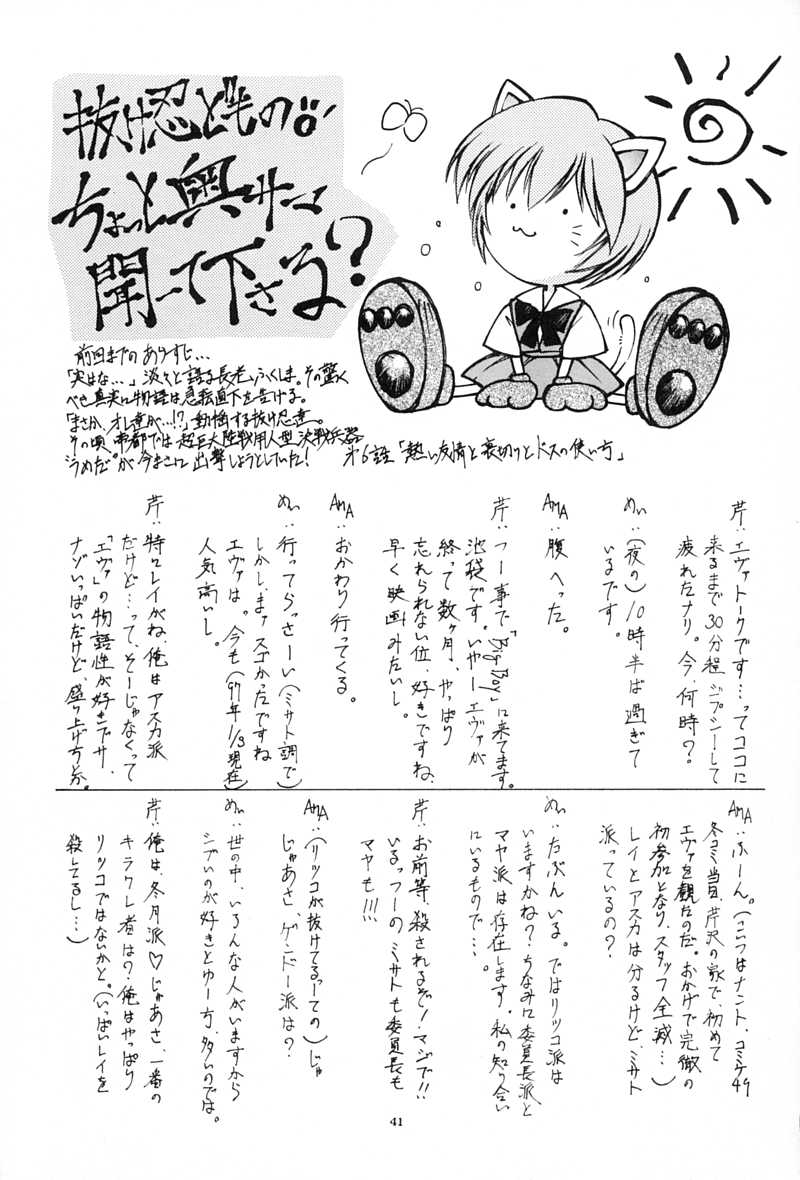 抜け忍どもの
ちょっと奥サマ
聞って下さる?
前回までのあらすじ…
「実はな…」淡々と語る長老ふくしま。その驚く
べき真実に物語は急転直下を告げる。
「まさか、オレ達が…!?」動揺する抜け忍達。
その頃、帝都では超巨大陸戦用人型決戦兵器
〝うめだ〟が今まさに出撃しようとしていた!
第6話「熱い友情と裏切りとドスの使い方」
芹:エヴァトークです…ってココに
来るまで30分程ジプシーして
疲れたナリ。今、何時?
めぃ:(夜の)10時半ば過ぎて
いるです。
AMA:腹へった。
芹:つー事で「Big Boy」に来てます。
池袋です。いやーエヴァが
終って数ヶ月、やっぱり
忘れられない位、好きですね、
早く映画みたいし。
AMA:おかわり行ってくる。
めぃ:行ってらっさーい(ミサト調で)
しかし、まァスゴかったですね
エヴァは。今も(97年1/3現在)
人気高いし。
芹:特にレイがね、俺はアスカ派
だけど…って、そーじゃなくって
「エヴァ」の物語性が好きでサ、
ナゾいっぱいだけど、盛り上げ方とか。
AMA:ふーん。(こいつはナント、コミケ49
冬コミ当日、芹沢の家で、初めて
エヴァを観たのだ。おかげで完徹の
初参加となり、スタッフ全滅…)
レイとアスカは分るけど、ミサト
派っているの?
めぃ:たぶんいる。ではリツコ派は
いますかね?ちなみに委員長派と
マヤ派は存在します。私の知り合い
にいるもので…。
芹:お前等、殺されるぞ!マジで!!
いるっつーの ミサトも委員長も
マヤも!!!
AMA:(リツコが抜けてるっーての)じ
じゃあさ、ゲンドー派は?
めぃ:世の中、いろんな人がいますから
シブいのが好きとゆー方、多いのでは。
芹:俺は、冬月派♡じゃあさ、一番の
キラクレ者は?俺はやっぱり
リツコではないかと。(いっぱいレイを
殺してるし…)
41